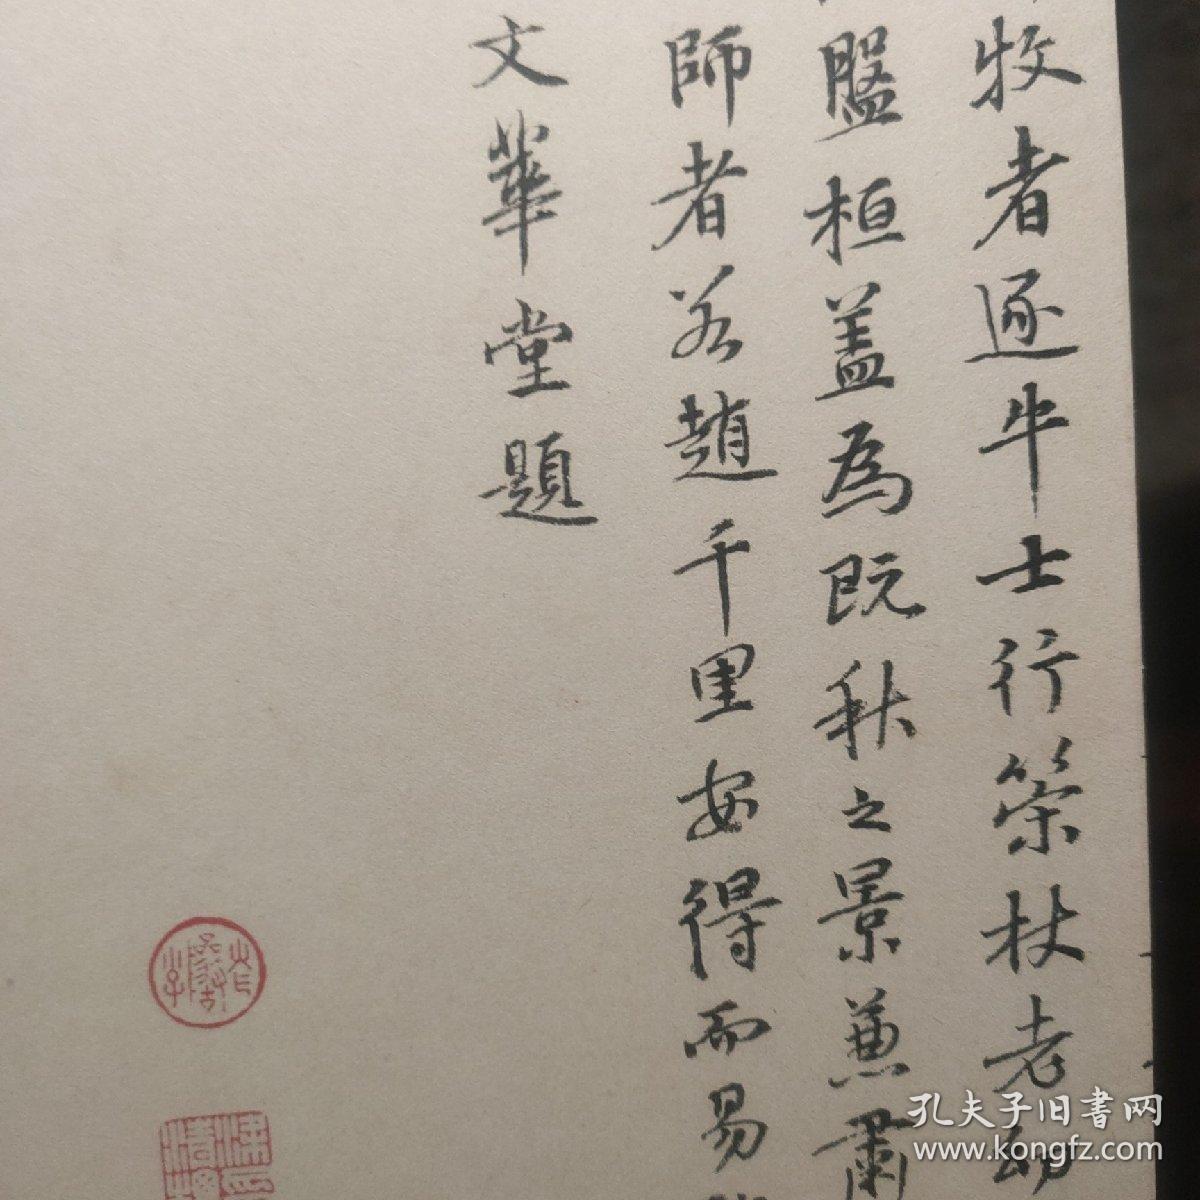 牧者逐牛士行策杖老幼
盤桓盖為既秋之景兼肅
師者若趙千里安得而易
文華堂題
孔夫子旧書网
www.kongfz.com